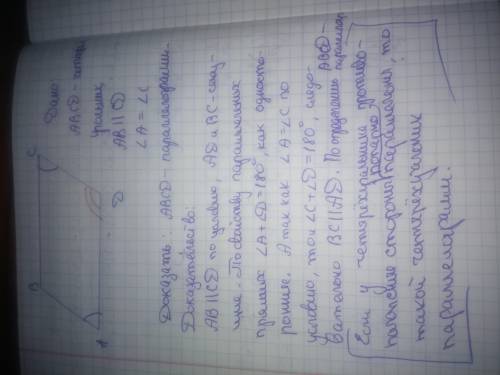 B
C
A
D
Дано:
ABCD – четыр
угольник
AB || CD
∠A = ∠C
Доказать: ABCD – параллелограмм.
Доказательство:
AB || CD по условию, AD и BC – секу-
щие. По свойству параллельных
прямых ∠A + ∠D = 180°, как односто-
ронние. А так как ∠A = ∠C по
условию, то и ∠C + ∠D = 180°, следо-
вательно BC || AD. По определению ABCD –
параллелогр
Если у четырехугольника противо-
попарно
положные стороны параллельны, то
такой четырёхугольник
параллелограмм.